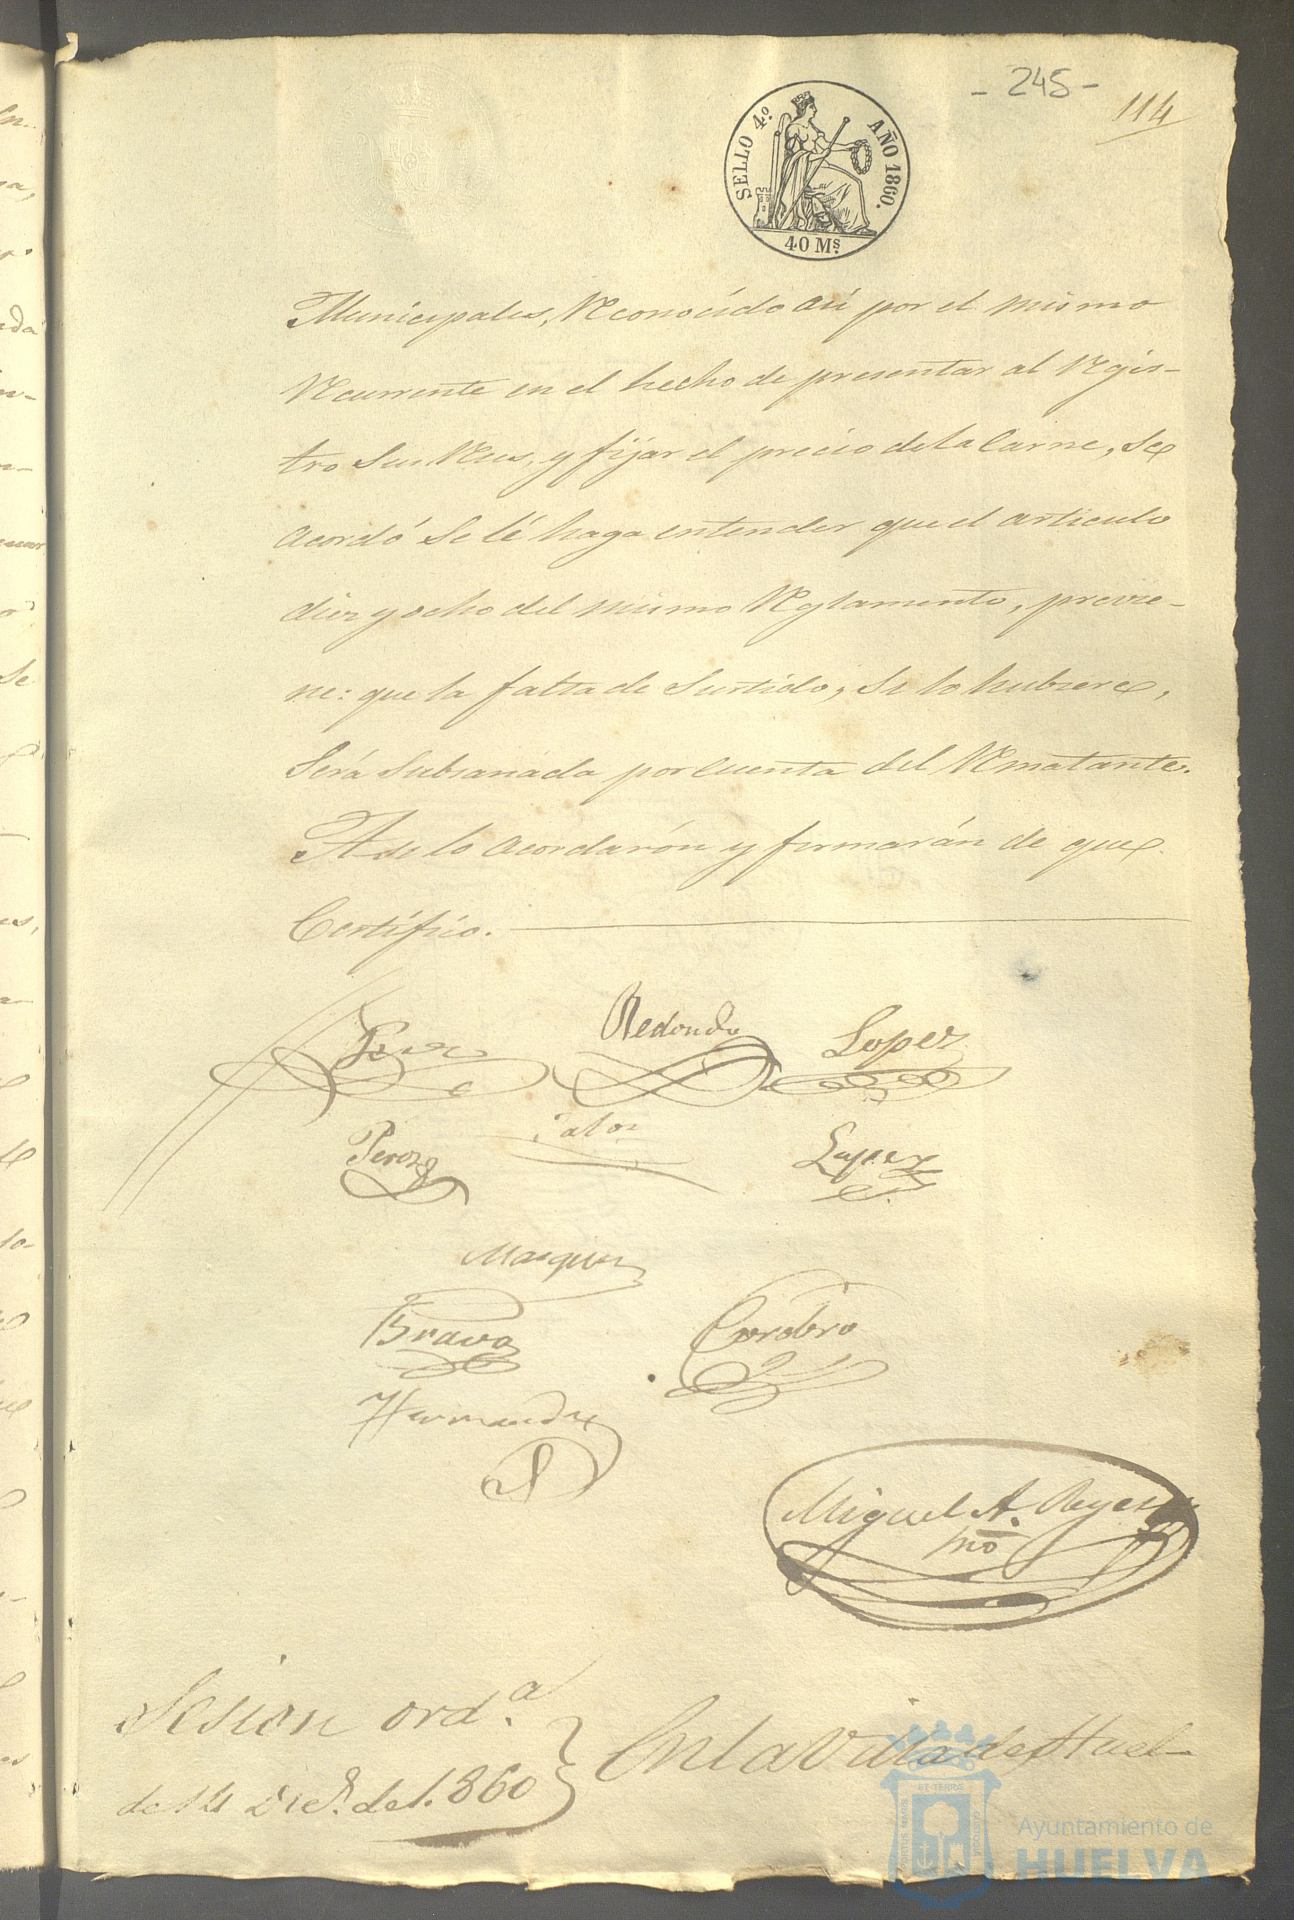 - 245 -
114
SELLO 4.º AÑO 1860.
40 Ms.
Municipales, Reconocido así por el mismo
Recurrente en el hecho de presentar al Regis-
tro Sus Reses, y fijar el precio de la Carne, Se
acordó Se le haga entender que el articulo
diez y ocho del mismo Reglamento, previe-
ne: que la falta de Surtido, Si lo hubiere,
Será Subsanada por cuenta del Rematante.
Asi lo acordarón y firmarán de que
Certifico.
Redondo Lopez
Perez Lopez
Marquez
Bravo Cordero
Hernandez
Miguel A. Reyes
Sesion ord.ª
de 14 Dic.e de 1.860
En la Villa de Huel-
ET TERRÆ
PORTUS MARIS
CUSTODIA
Ayuntamiento de
HUELVA